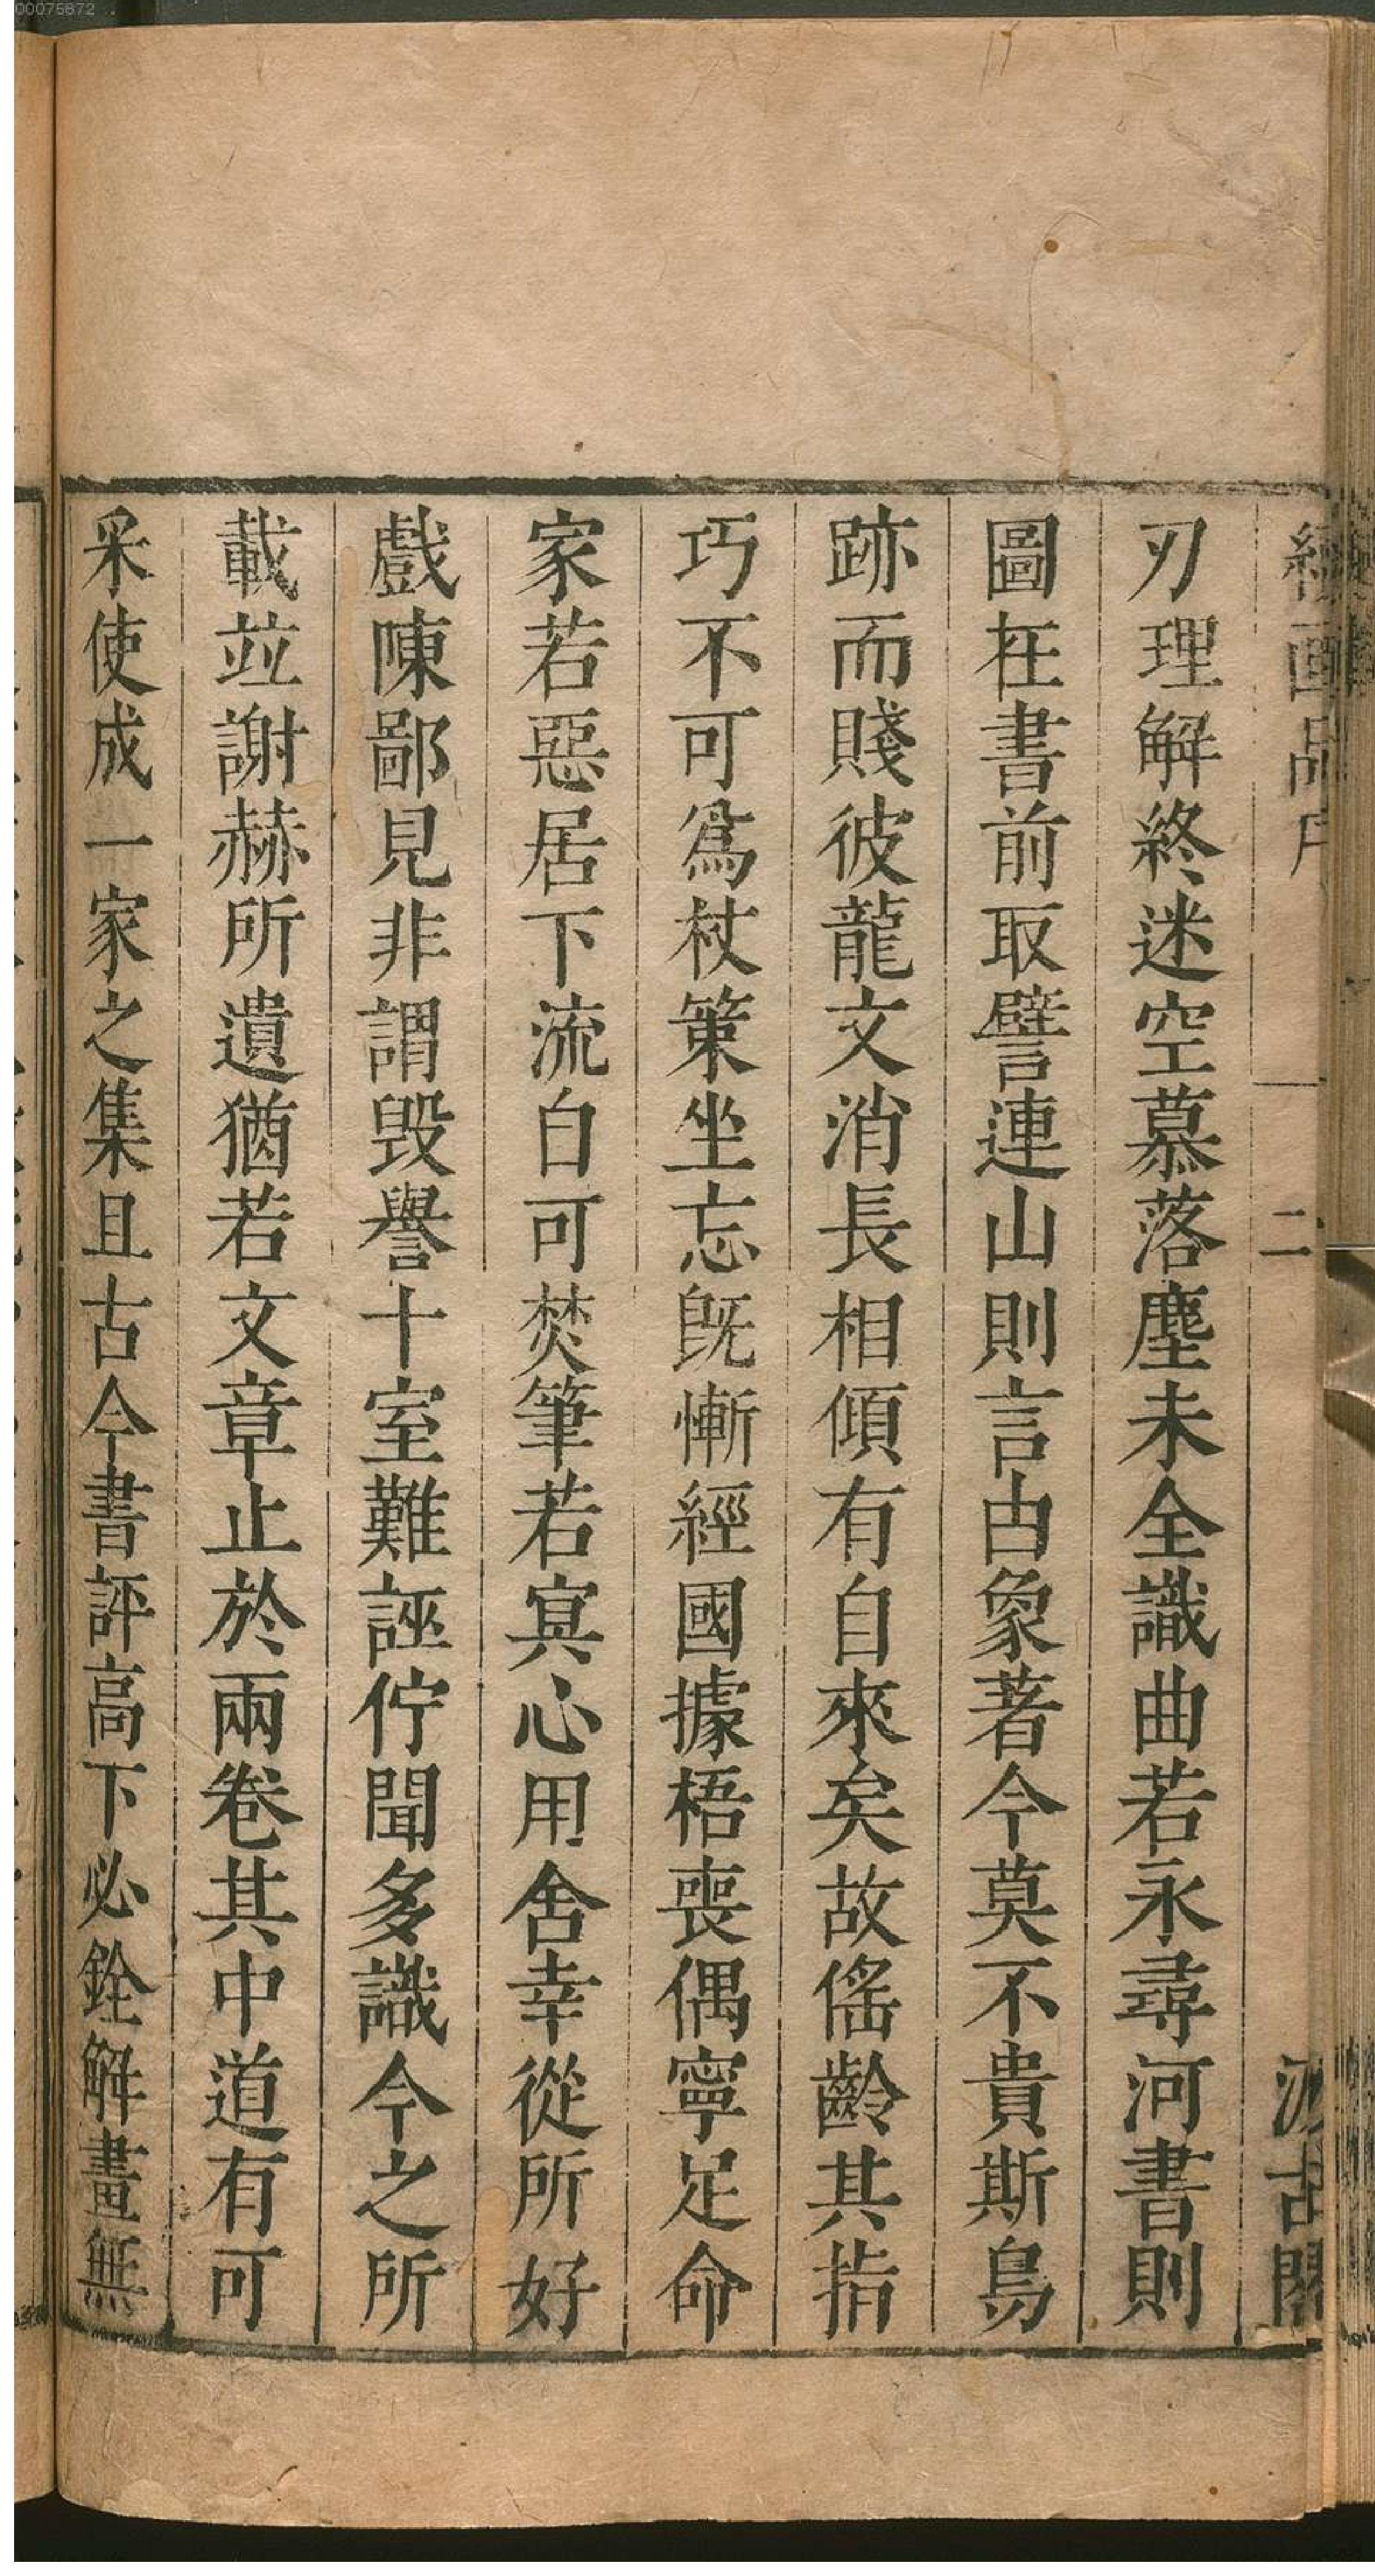 00075872
續画品序 二 汲古閣
刃理解終迷空慕落塵未全識曲若永尋河書則
圖在書前取譬連山則言由象著今莫不貴斯鳥
跡而賤彼龍文消長相傾有自來矣故倕齡其指
巧不可爲杖策坐忘旣慚經國據梧喪偶寧足命
家若惡居下流自可焚筆若冥心用舍幸從所好
戲陳鄙見非謂毀譽十室難誣佇聞多識今之所
載竝謝赫所遺猶若文章止於兩卷其中道有可
采使成一家之集且古今書評高下必銓解畫無